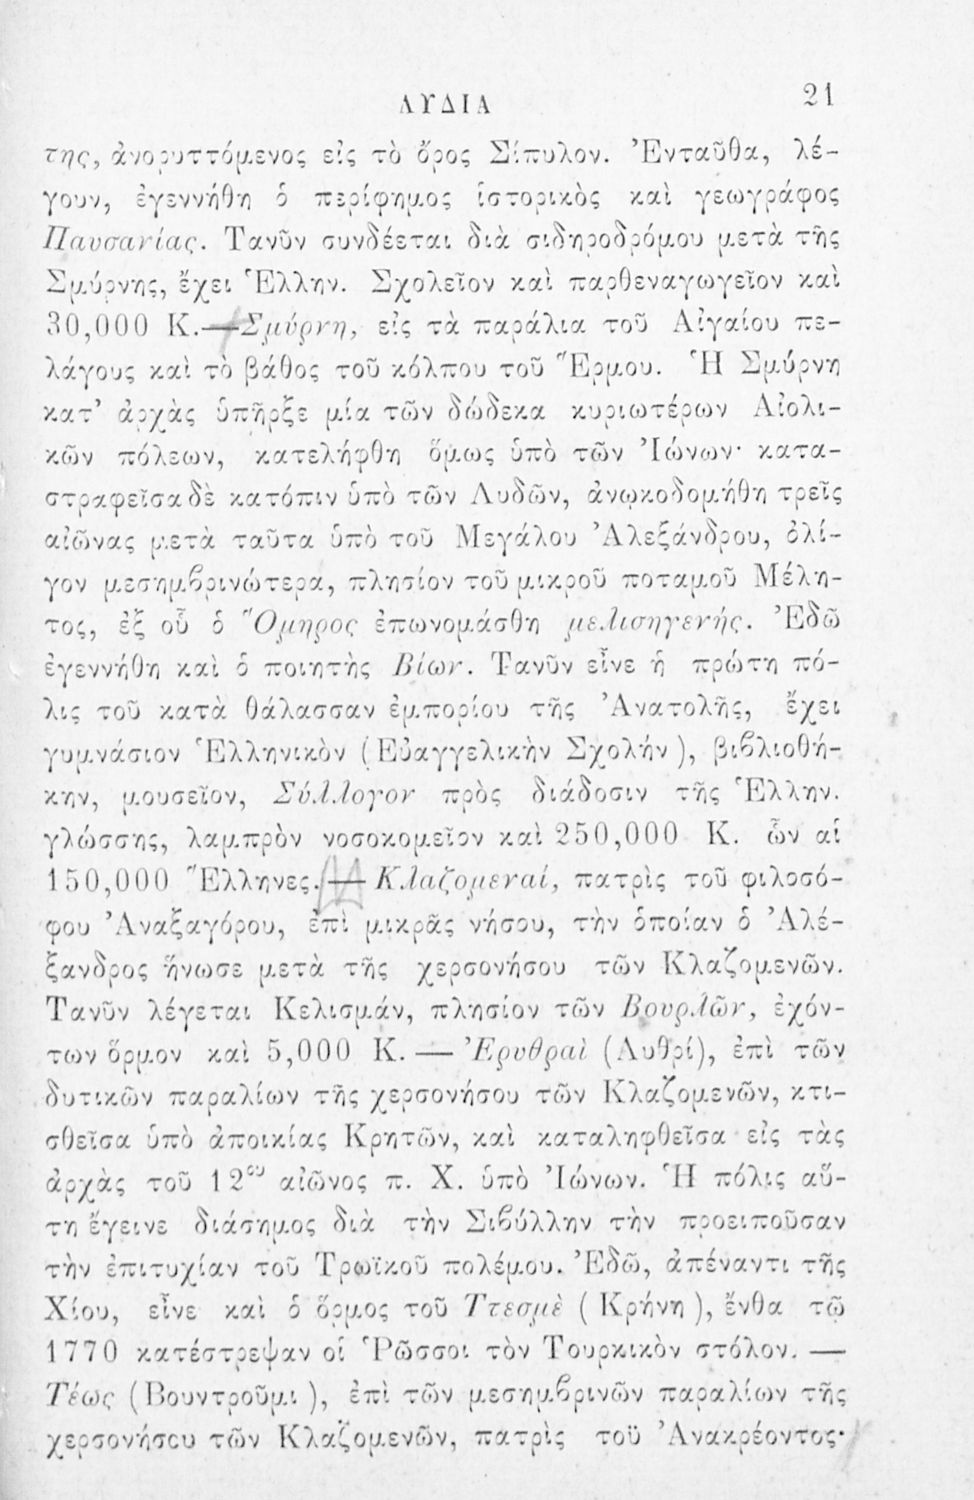 ΛΥΔΙΑ 21
της, ἀνορυττόμενος εἰς τὸ ὄρος Σίπυλον. Ἐνταῦθα, λέ-
γουν, ἐγεννήθη ὁ περίφημος ἱστορικὸς καὶ γεωγράφος
Παυσανίας. Τανῦν συνδέεται διὰ σιδηροδρόμου μετὰ τῆς
Σμύρνης, ἔχει Ἑλλην. Σχολεῖον καὶ παρθεναγωγεῖον καὶ
30,000 Κ.—Σμύρνη, εἰς τὰ παράλια τοῦ Αἰγαίου πε-
λάγους καὶ τὸ βάθος τοῦ κόλπου τοῦ Ἕρμου. Ἡ Σμύρνη
κατ' ἀρχὰς ὑπῆρξε μία τῶν δώδεκα κυριωτέρων Αἰολι-
κῶν πόλεων, κατελήφθη ὅμως ὑπὸ τῶν Ἰώνων· κατα-
στραφεῖσα δὲ κατόπιν ὑπὸ τῶν Λυδῶν, ἀνῳκοδομήθη τρεῖς
αἰῶνας μετὰ ταῦτα ὑπὸ τοῦ Μεγάλου Ἀλεξάνδρου, ὀλί-
γον μεσημβρινώτερα, πλησίον τοῦ μικροῦ ποταμοῦ Μέλη-
τος, ἐξ οὗ ὁ Ὅμηρος ἐπωνομάσθη μελισηγενής. Ἐδῶ
ἐγεννήθη καὶ ὁ ποιητὴς Βίων. Τανῦν εἶνε ἡ πρώτη πό-
λις τοῦ κατὰ θάλασσαν ἐμπορίου τῆς Ἀνατολῆς, ἔχει
γυμνάσιον Ἑλληνικὸν (Εὐαγγελικὴν Σχολήν), βιβλιοθή-
κην, μουσεῖον, Σύλλογον πρὸς διάδοσιν τῆς Ἑλλην.
γλώσσης, λαμπρὸν νοσοκομεῖον καὶ 250,000 Κ. ὧν αἱ
150,000 Ἕλληνες.— Κλαζομεναί, πατρὶς τοῦ φιλοσό-
φου Ἀναξαγόρου, ἐπὶ μικρᾶς νήσου, τὴν ὁποίαν ὁ Ἀλέ-
ξανδρος ἥνωσε μετὰ τῆς χερσονήσου τῶν Κλαζομενῶν.
Τανῦν λέγεται Κελισμάν, πλησίον τῶν Βουρλῶν, ἐχόν-
των ὅρμον καὶ 5,000 Κ. — Ἐρυθραὶ (Λυθρί), ἐπὶ τῶν
δυτικῶν παραλίων τῆς χερσονήσου τῶν Κλαζομενῶν, κτι-
σθεῖσα ὑπὸ ἀποικίας Κρητῶν, καὶ καταληφθεῖσα εἰς τὰς
ἀρχὰς τοῦ 12ου αἰῶνος π. Χ. ὑπὸ Ἰώνων. Ἡ πόλις αὕ-
τη ἔγεινε διάσημος διὰ τὴν Σιβύλλην τὴν προειποῦσαν
τὴν ἐπιτυχίαν τοῦ Τρωϊκοῦ πολέμου. Ἐδῶ, ἀπέναντι τῆς
Χίου, εἶνε καὶ ὁ ὅρμος τοῦ Τσεσμὲ (Κρήνη), ἔνθα τῷ
1770 κατέστρεψαν οἱ Ῥῶσσοι τὸν Τουρκικὸν στόλον. —
Τέως (Βουντροῦμι), ἐπὶ τῶν μεσημβρινῶν παραλίων τῆς
χερσονήσου τῶν Κλαζομενῶν, πατρὶς τοῦ Ἀνακρέοντος·